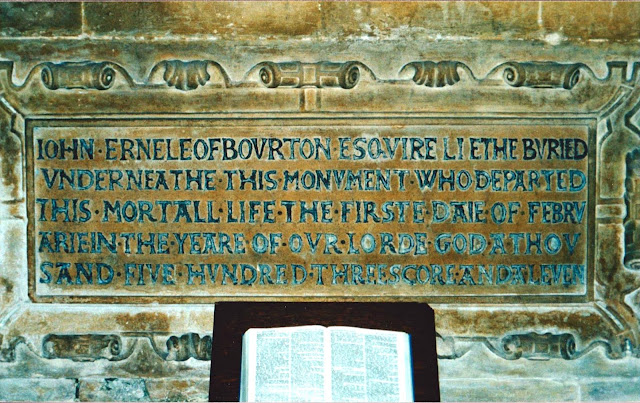 IOHN · ERNELE OF BOVRTON ESQVIRE LIETHE BVRIED
VNDERNEATHE · THIS MONVMENT · WHO DEPARTED
THIS · MORTALL · LIFE · THE · FIRSTE · DAIE · OF · FEBRV
ARIE IN · THE · YEARE · OF · OVR · LORDE · GOD A THOV
SAND · FIVE · HVNDRED · THREESCORE AND ALEVEN